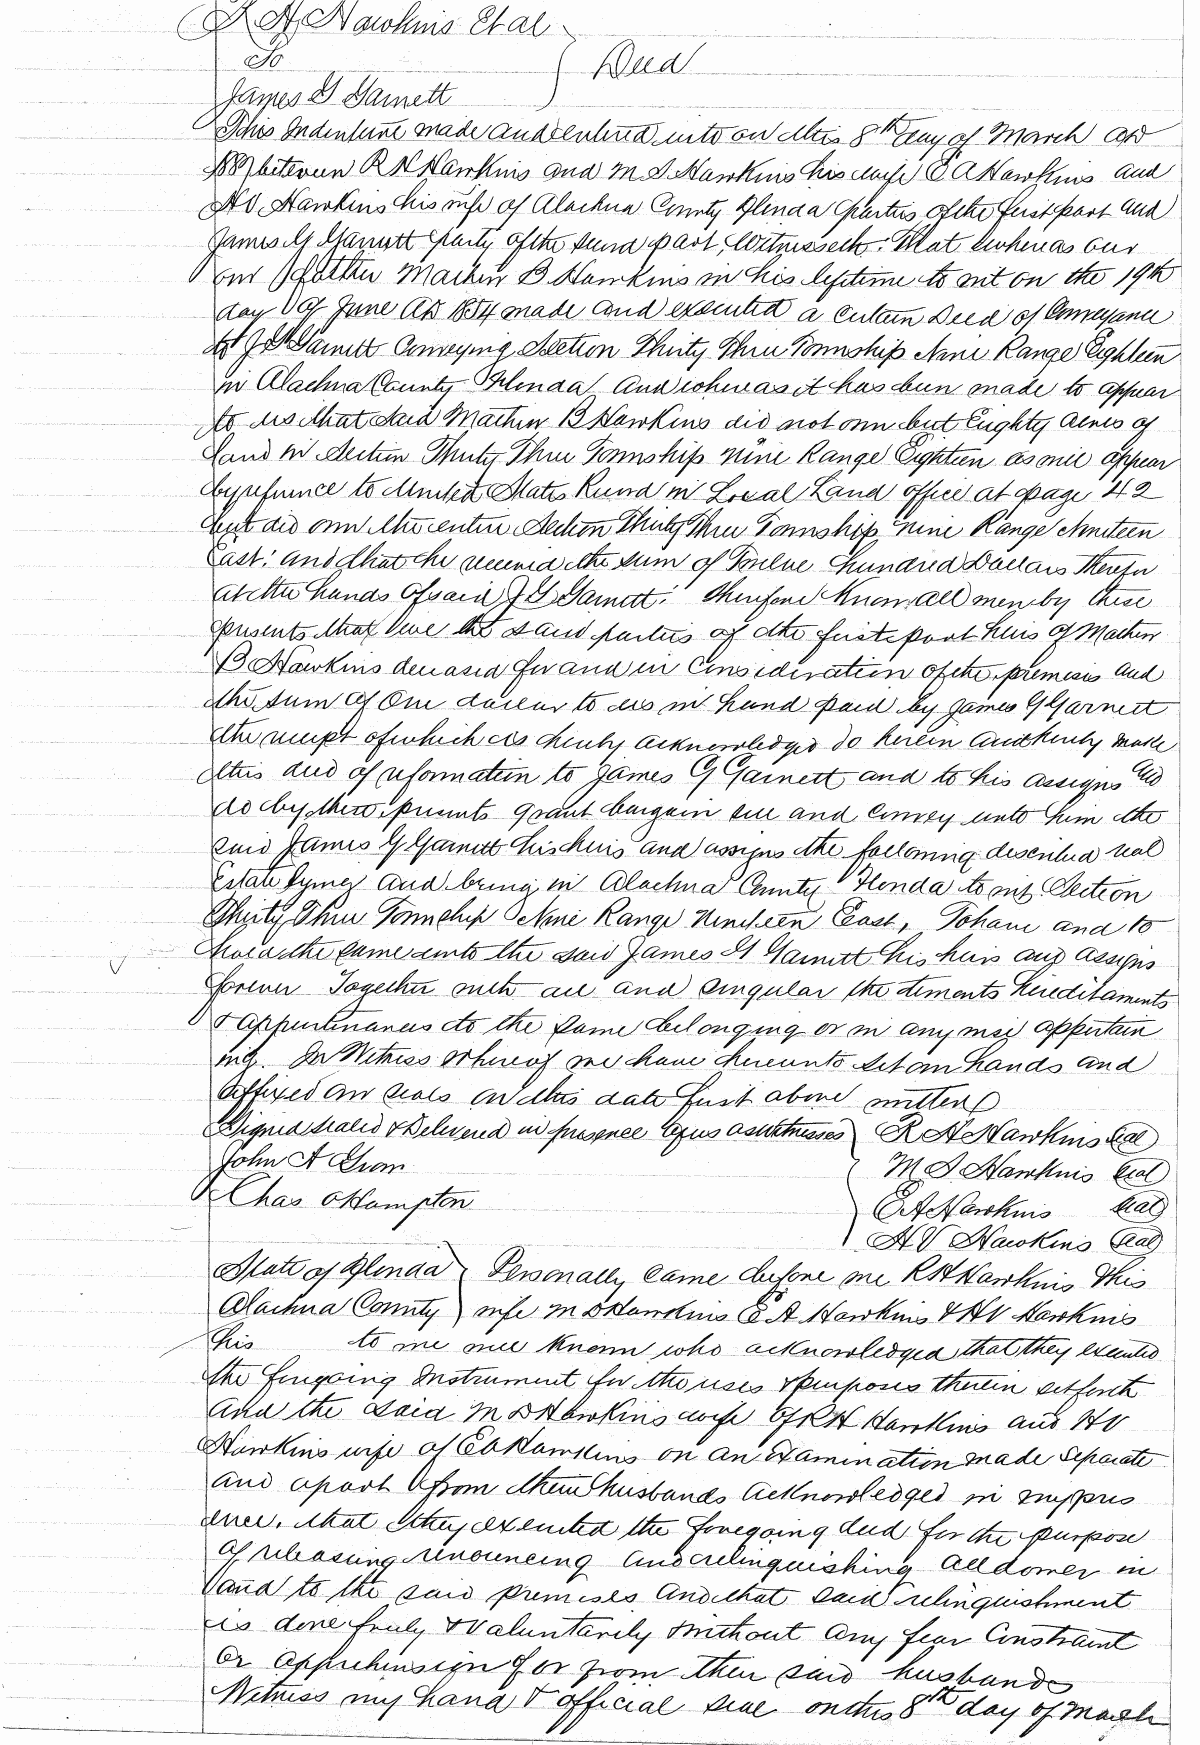 R H Hawkins Et al
To } Deed
James G Garnett
This Indenture made and entered into on this 8th day of March AD
between R H Hawkins and M S Hawkins his wife E A Hawkins and
H V Hawkins his wife of Alachua County Florida parties of the first part and
James G Garnett party of the second part, Witnesseth: That whereas our
our father Mathew B Hawkins in his lifetime to wit on the 19th
day of June AD 1854 made and executed a certain Deed of Conveyance
to J G Garnett Conveying Section Thirty Three Township Nine Range Eighteen
in Alachua County Florida And whereas it has been made to appear
to us that said Mathew B Hawkins did not own but Eighty acres of
land in Section Thirty Three Township nine Range Eighteen as will appear
by refrence to United States Record in Local Land office at page 42
but did own the entire Section Thirty Three Township nine Range Nineteen
East: and that he received the sum of Twelve hundred Dollars therefor
at the hands of said J G Garnett: Therefore Know all men by these
presents that we the said parties of the first part heirs of Mathew
B Hawkins deceased for and in Consideration of the premises and
the sum of One dollar to us in hand paid by James G Garnett
the receipt of which is hereby acknowledged do herein and hereby make
this deed of reformation to James G Garnett and to his assigns and
do by these presents grant bargain sell and convey unto him the
said James G Garnett his heirs and assigns the following described real
Estate lying and being in Alachua County Florida to wit Section
Thirty Three Township Nine Range Nineteen East, To have and to
hold the same unto the said James G Garnett his heirs and assigns
forever Together with all and singular the tenements hereditaments
& appurtenances to the same belonging or in any wise appertain
ing. In Witness whereof we have hereunto set our hands and
affixed our seals on this date first above written
Signed sealed & Delivered in presence of us as witnesses } R H Hawkins Seal
John A M S Hawkins Seal
Chas Hampton E A Hawkins Seal
H V Hawkins Seal
State of Florida } Personally came before me R H Hawkins & his
Alachua County } wife M S Hawkins E A Hawkins & H V Hawkins
his to me well known who acknowledged that they executed
the foregoing Instrument for the uses & purposes therein set forth
And the said M S Hawkins wife of R H Hawkins and H V
Hawkins wife of E A Hawkins on an Examination made separate
and apart from their husbands acknowledged in my pres
ence, that they executed the foregoing deed for the purpose
of releasing renouncing and relinquishing all dower in
and to the said premises and that said relinquishment
is done freely & Voluntarily & without any fear Constraint
or apprehension of or from their said husbands
Witness my hand & official seal on this 8th day of March